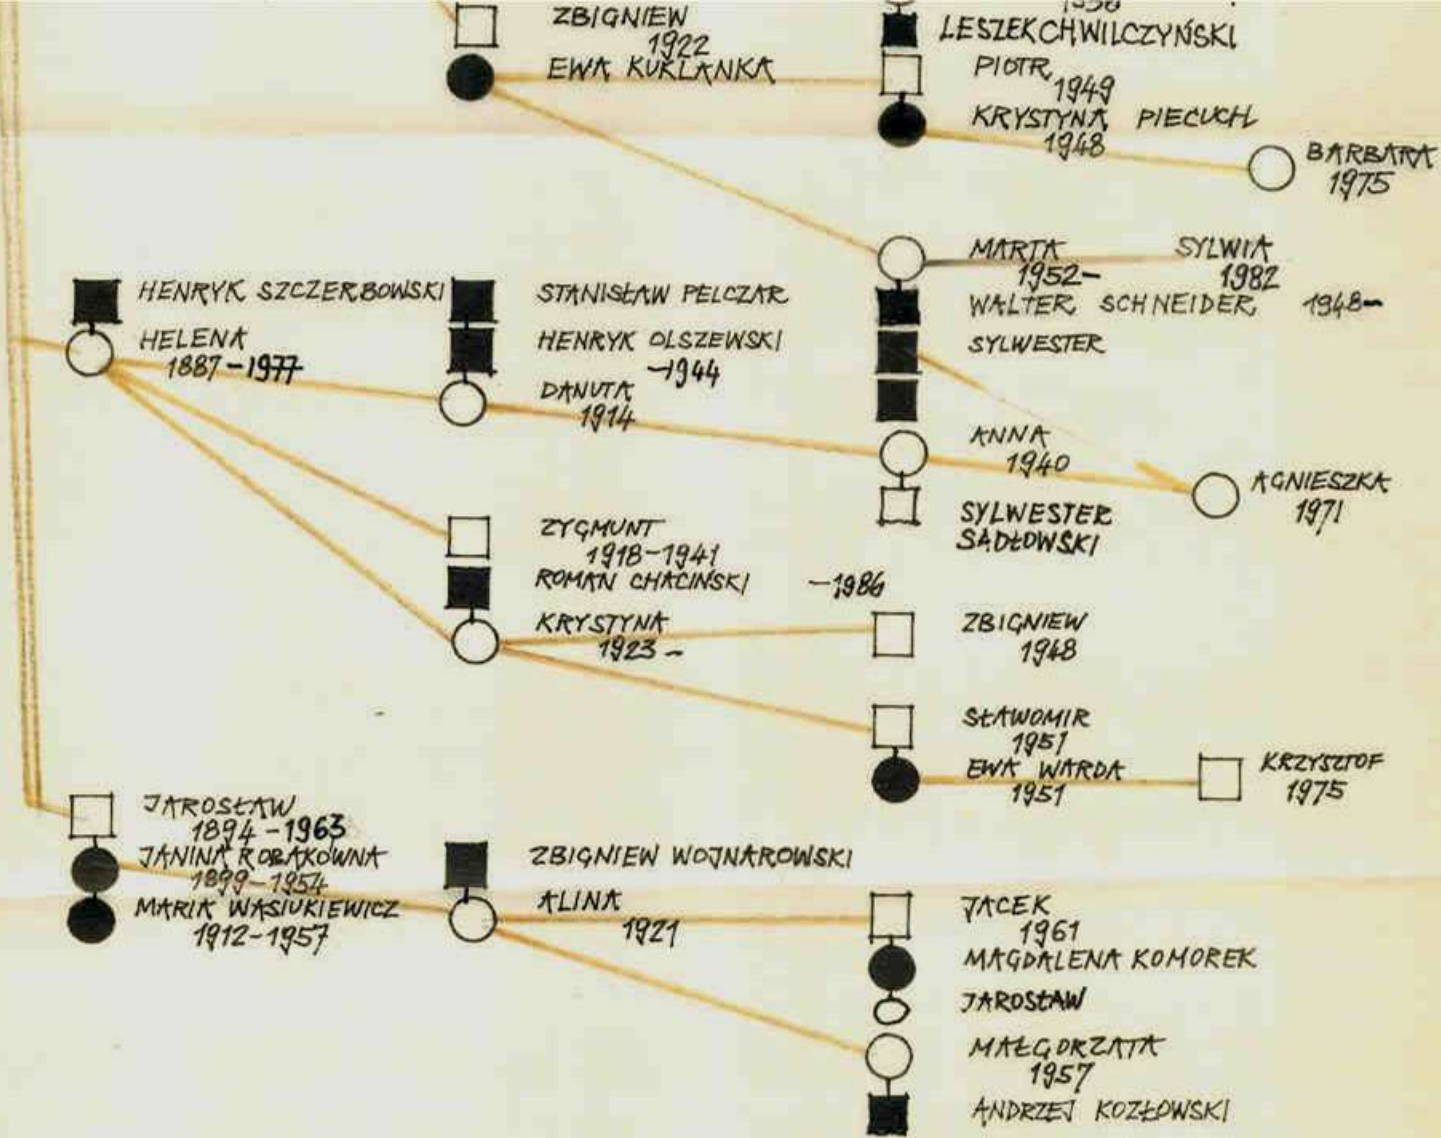 ZBIGNIEW
1922
EWA KUKLANKA
LESZEK CHWILCZYŃSKI
PIOTR
1949
KRYSTYNA PIECUCH
1948
BARBARA
1975
MARTA
1952-
SYLWIA
1982
WALTER SCHNEIDER 1948-
SYLWESTER
HENRYK SZCZERBOWSKI
HELENA
1887-1977
STANISŁAW PELCZAR
HENRYK OLSZEWSKI
-1944
DANUTA
1914
ANNA
1940
AGNIESZKA
1971
SYLWESTER
SADŁOWSKI
ZYGMUNT
1918-1941
ROMAN CHACIŃSKI -1986
KRYSTYNA
1923-
ZBIGNIEW
1948
SŁAWOMIR
1951
EWA WARDA
1951
KRZYSZTOF
1975
JAROSŁAW
1894-1963
JANINA ROBAKÓWNA
1899-1954
MARIA WASIUKIEWICZ
1912-1957
ZBIGNIEW WOJNAROWSKI
ALINA
1921
JACEK
1961
MAGDALENA KOMOREK
JAROSŁAW
MAŁGORZATA
1957
ANDRZEJ KOZŁOWSKI